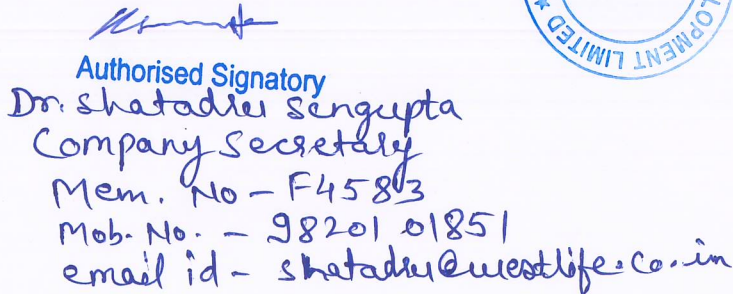 OPMENT LIMITED *
Authorised Signatory
Dr. Shatadru Sengupta
Company Secretary
Mem. No - F4583
Mob. No. - 98201 01851
email id - shatadru@westlife.co.in